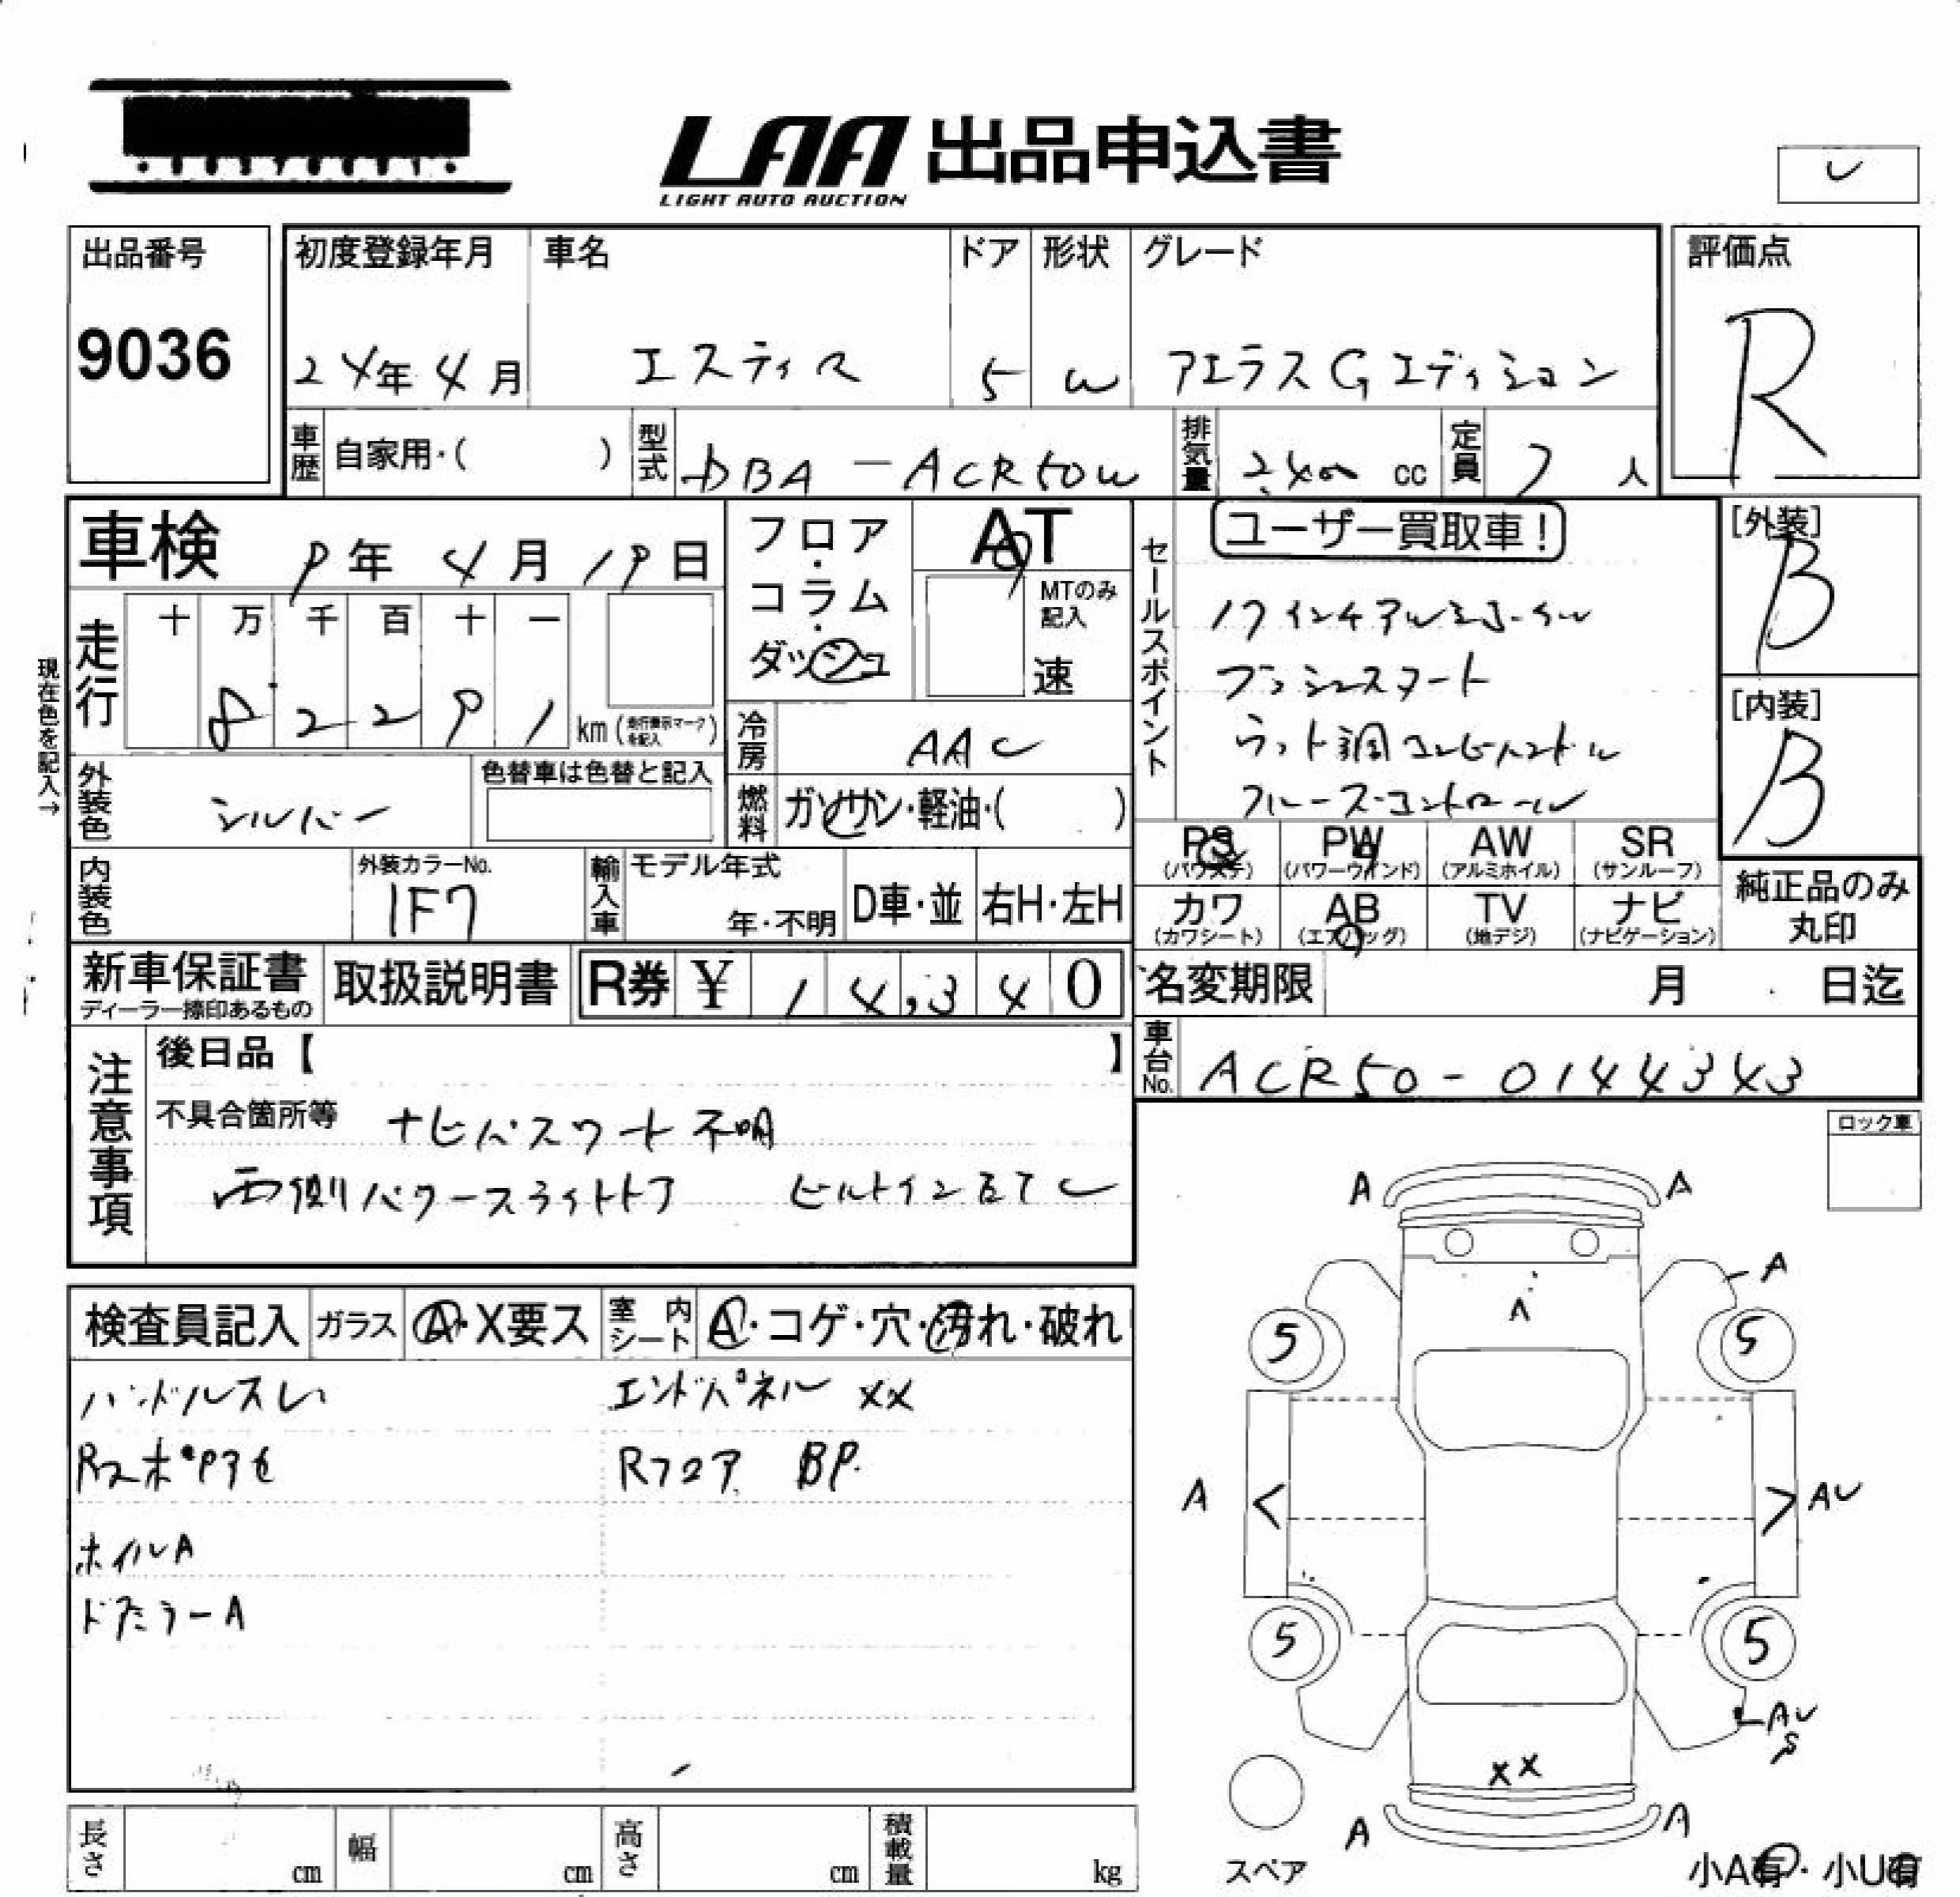 LAA 出品申込書
LIGHT AUTO AUCTION
出品番号
9036
初度登録年月
24年4月
車名
エスティマ
ドア
5
形状
W
グレード
アエラスGエディション
評価点
R
車歴 自家用・( )
型式 DBA-ACR50W
排気量 2,400 cc
定員 7 人
車検 9年 4月 19日
フロア・コラム・ダッシュ
AT
MTのみ記入
速
セールスポイント
ユーザー買取車!
17インチアルミホイール
プッシュスタート
ウッド調コンビハンドル
クルーズコントロール
[外装]
B
[内装]
B
現在色を記入→
走行
十 万 千 百 十 一
8 2 2 9 1 km (走行表示マークを記入)
冷房 AAC
外装色 シルバー
色替車は色替と記入
燃料 ガソリン・軽油・( )
PS (パワステ) PW (パワーウインド) AW (アルミホイル) SR (サンルーフ)
カワ (カワシート) AB (エアバッグ) TV (地デジ) ナビ (ナビゲーション)
純正品のみ丸印
内装色
外装カラーNo.
1F7
輸入車 モデル年式
年・不明
D車・並 右H・左H
新車保証書
ディーラー捺印あるもの
取扱説明書
R券 ¥ 14,340
名変期限 月 日迄
車台No. ACR50-0144343
注意事項
後日品【 】
不具合箇所等 ナビパスワード不明
両側パワースライドドア ビルトインETC
ロック車
検査員記入 ガラス A・X要ス 室内シート A・コゲ・穴・汚れ・破れ
ハンドルスレ エンドパネル XX
Rフロア BP
ホイルA
ドアミラーA
A A
A
A
5 5
A < > AU
5 5
AU
S
XX
A A
スペア
小A有・小U有
長さ cm 幅 cm 高さ cm 積載量 kg